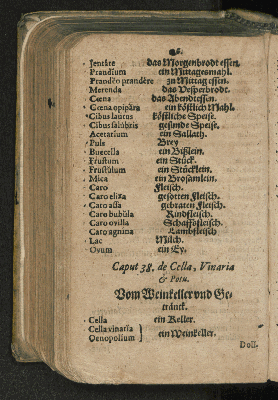 Jentâre das Morgenbrodt essen.
Prandium ein Mittagesmahl.
Prandêo prandêre zu Mittag essen.
Merenda das Vesperbrodt.
Cœna das Abendtessen.
Cœna opipâra ein köstlich Mahl.
Cibus lautus köstliche Speise.
Cibus salûbris gesunde Speise.
Acetarium ein Sallath.
Puls Brey
Buccella ein Bißlein.
Frustum ein Stück.
Frustŭlum ein Stücklein.
Mica ein Brosamlein.
Caro Fleisch.
Caro elixa gesotten Fleisch.
Caro assa gebraten Fleisch.
Caro bubŭla Rindfleisch.
Caro ovilla Schaffsfleisch.
Caro agnina Lambfleisch
Lac Milch.
Ovum ein Ey.
Caput 38. de Cella, Vinaria
& Potu.
Vom Weinkeller vnd Ge-
tränck.
Cella ein Keller.
Cella vinaria } ein Weinkeller.
Oenopolium
Doll.